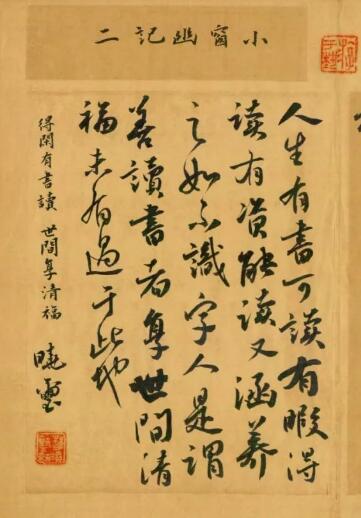 小窗幽記二
人生有書可读有暇得
读有资能读又涵养
之如不識字人是謂
善讀書者享世間清
福未有過于此也
得閑有書讀 世間享清福